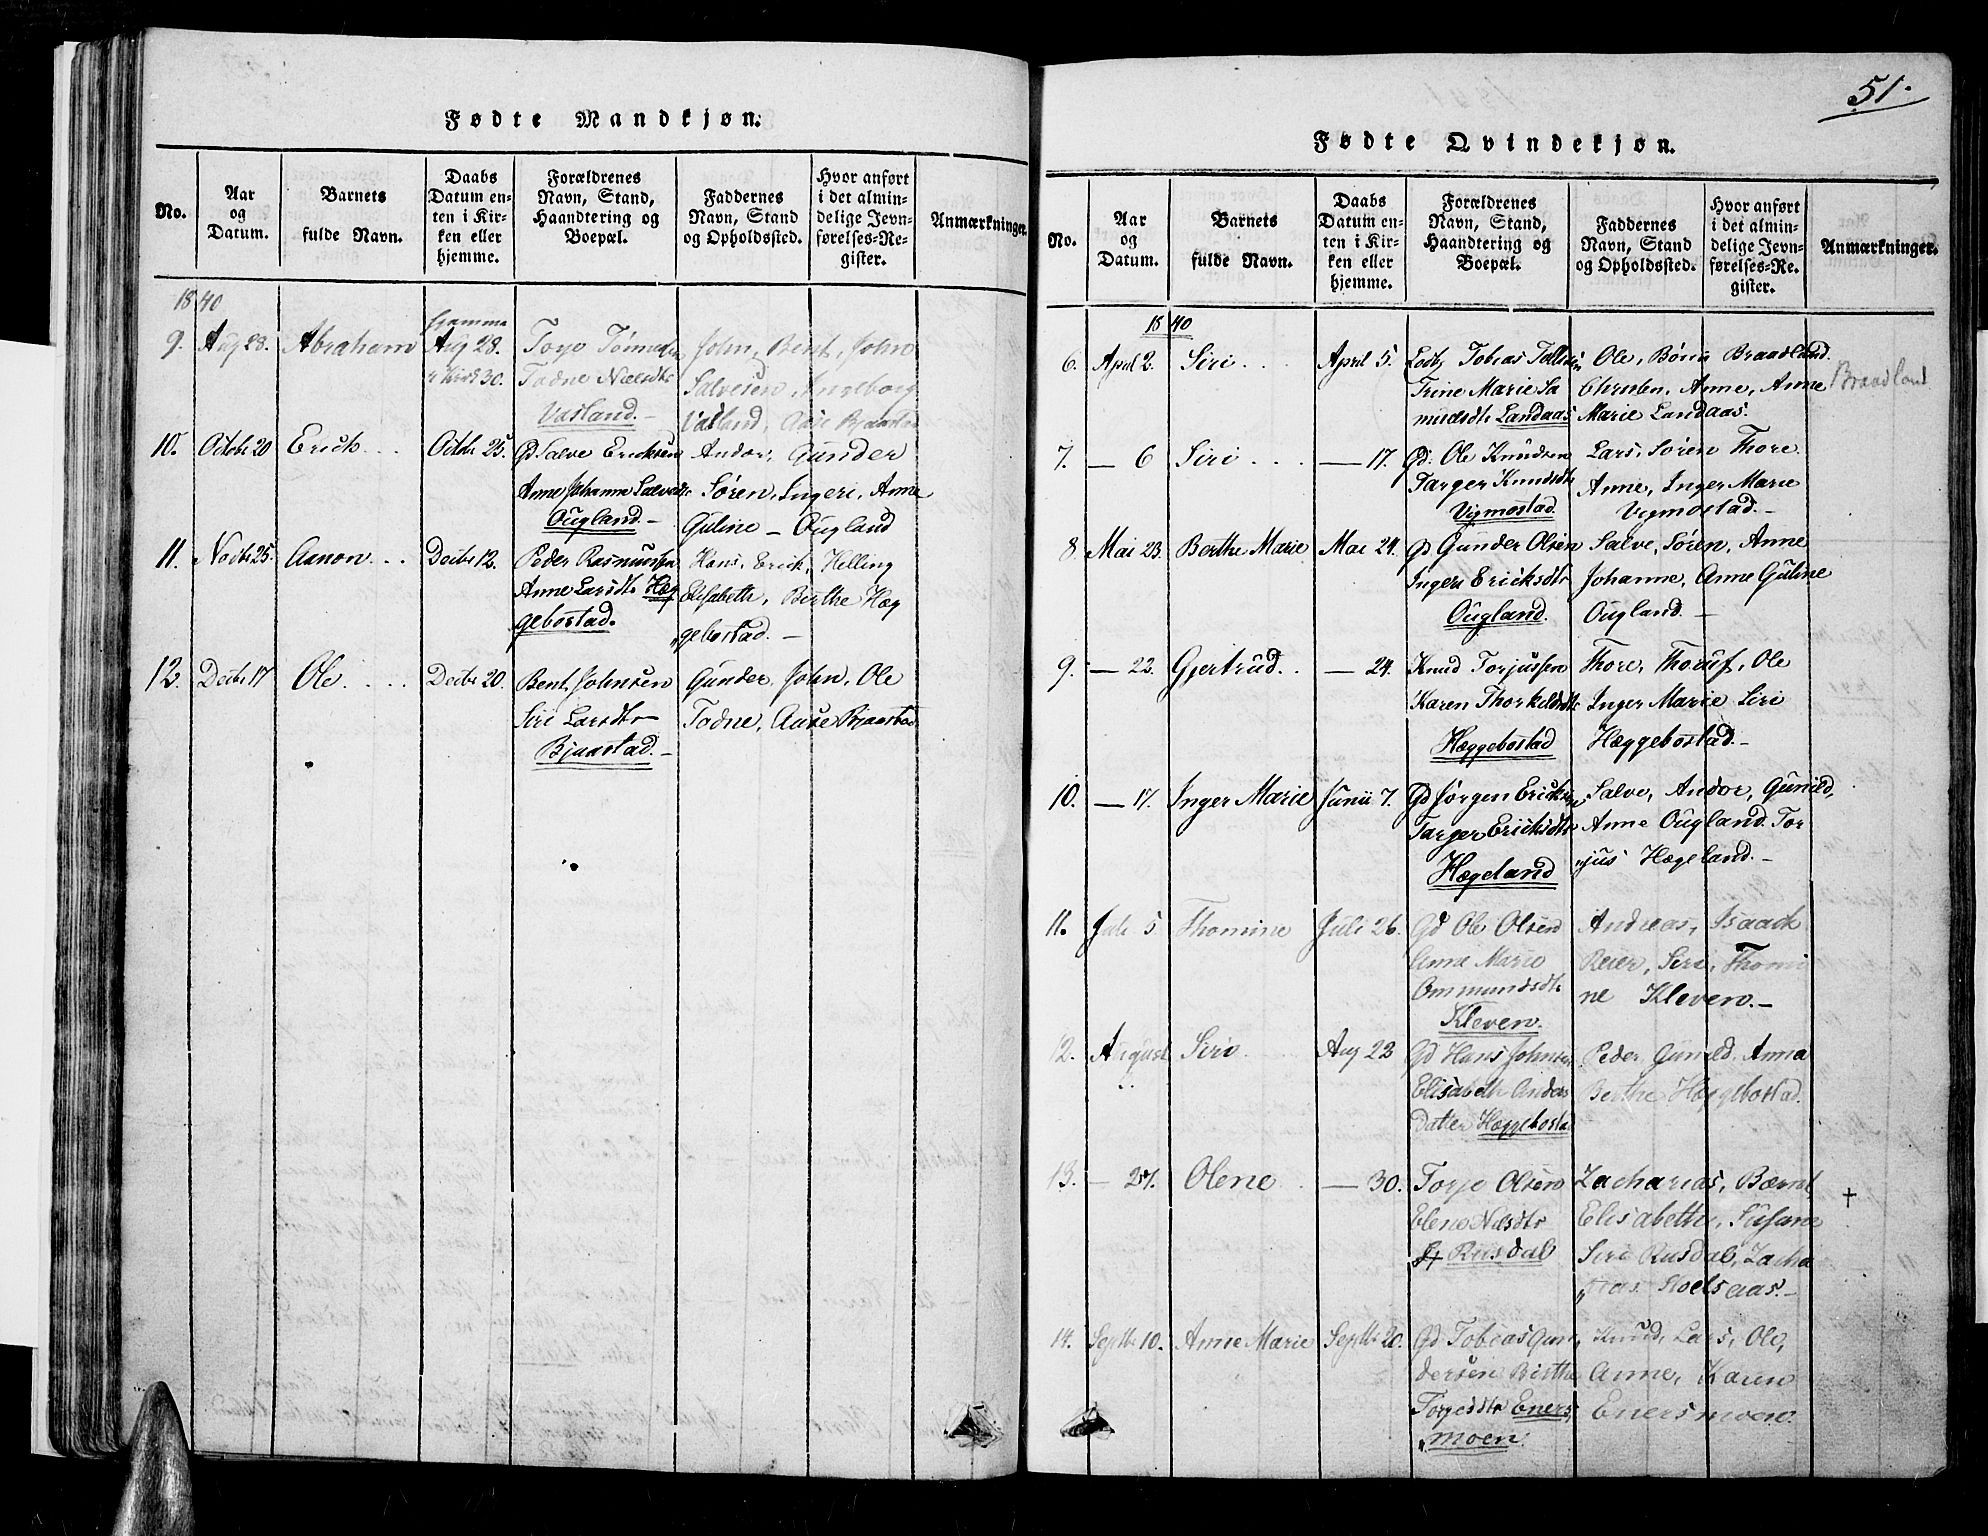 Fødte Mandkjøn.
No.
Aar
og
Datum.
Barnets
fulde Navn.
Daabs
Datum en-
ten i Kir-
ken eller
hjemme.
Forældrenes
Navn, Stand,
Haandtering og
Boepæl.
Faddernes
Navn, Stand
og Opholdssted.
Hvor anført
i det almin-
delige Jevn-
førelses-Re-
gister.
Anmærkninger.
1840
9. Aug 28. Abraham
hjemme
Aug 28.
i Kirk 30.
Torje
Tadne Nielsdtr
Vasland.
John, Bent, John
Salvesen, Ingeborg
Vasland, Aase Bjaastad
10. Octobr 20 Erich Octobr 25.
Gd Salve Ericksen
Anne Johanne Salvesdtr
Ougland. -
Andor, Gunder
Søren, Ingeri, Anne
Guline - Ougland
11. Novbr 25. Aanon Decbr 12.
Peder Rasmussen
Anne Larsdtr Hæg
gebostad.
Hans, Erick, Helling
Elisabeth, Berthe Hæg
„gebostad. -
12. Decbr 17 Ole Decbr 20.
Bent Johnsen
Siri Larsdtr
Bjaastad. -
Gunder, John, Ole
Tadne, Aase Bjaastad
51.
Fødte Qvindekjøn.
No.
Aar
og
Datum.
Barnets
fulde Navn.
Daabs
Datum en-
ten i Kir-
ken eller
hjemme.
Forældrenes
Navn, Stand,
Haandtering og
Boepæl.
Faddernes
Navn, Stand
og Opholdssted.
Hvor anført
i det almin-
delige Jevn-
førelses-Re-
gister.
Anmærkninger.
1840
6. April 2. Siri April 5.
Tobias Tollefsen
Trine Marie Sa
muelsdtr Landaas
Ole, Børu Braadland.
Christen, Anne, Anne
Marie Landaas.
Braadland
7. - 6 Siri - 17.
Gd. Ole Knudsen
Targer Knudsdtr
Vigmostad
Lars, Søren Thore
Anne, Inger Marie
Vigmostad. -
8. Mai 23. Berthe Marie Mai 24.
Gd Gunder Olsen
Ingeri Ericksdtr
Ougland.
Salve, Søren, Anne
Johanne, Anne Guline
Ougland. -
9. - 22. Gjertrud - 24.
Knud Torjussen
Karen Thorkildsdtr
Hæggebostad
Thore, Thoruf, Ole
Inger Marie Siri
Hæggebostad. -
10. - 17. Inger Marie Junii 7.
Gd Jørgen Ericksen
Targer Ericksdtr
Hægeland
Salve, Andor, Gunild,
Anne Ougland. Tor
„jus Hægeland. -
11. Juli 5 Thomine Juli 26.
Gd Ole Olsen
Anne Marie
Ommundsdtr
Kleven.
Andreas, Isaack
Reier, Siri, Thomi
ne Kleven. -
12. August Siri Aug 23
Gd Hans Johnsen
Elisabeth Anders
Datter Hæggebostad
Peder, Gunild, Anna
Berthe Hæggebostad.
13. - 27. Olene - 30.
Torje Olsen
Elene Nielsdtr
Riisdal
Zacharias, Bærnt,
Elisabeth, Susane
Siri Riisdal, Zacha
„rias Stoelsaas. -
†
14. Septbr 10. Anne Marie Septbr 20.
Gd Tobias Gun
dersen Birthe
Torjedtr Eners
„moen.
Knud, Lars, Ole,
Anne, Karen
Enersmoen.